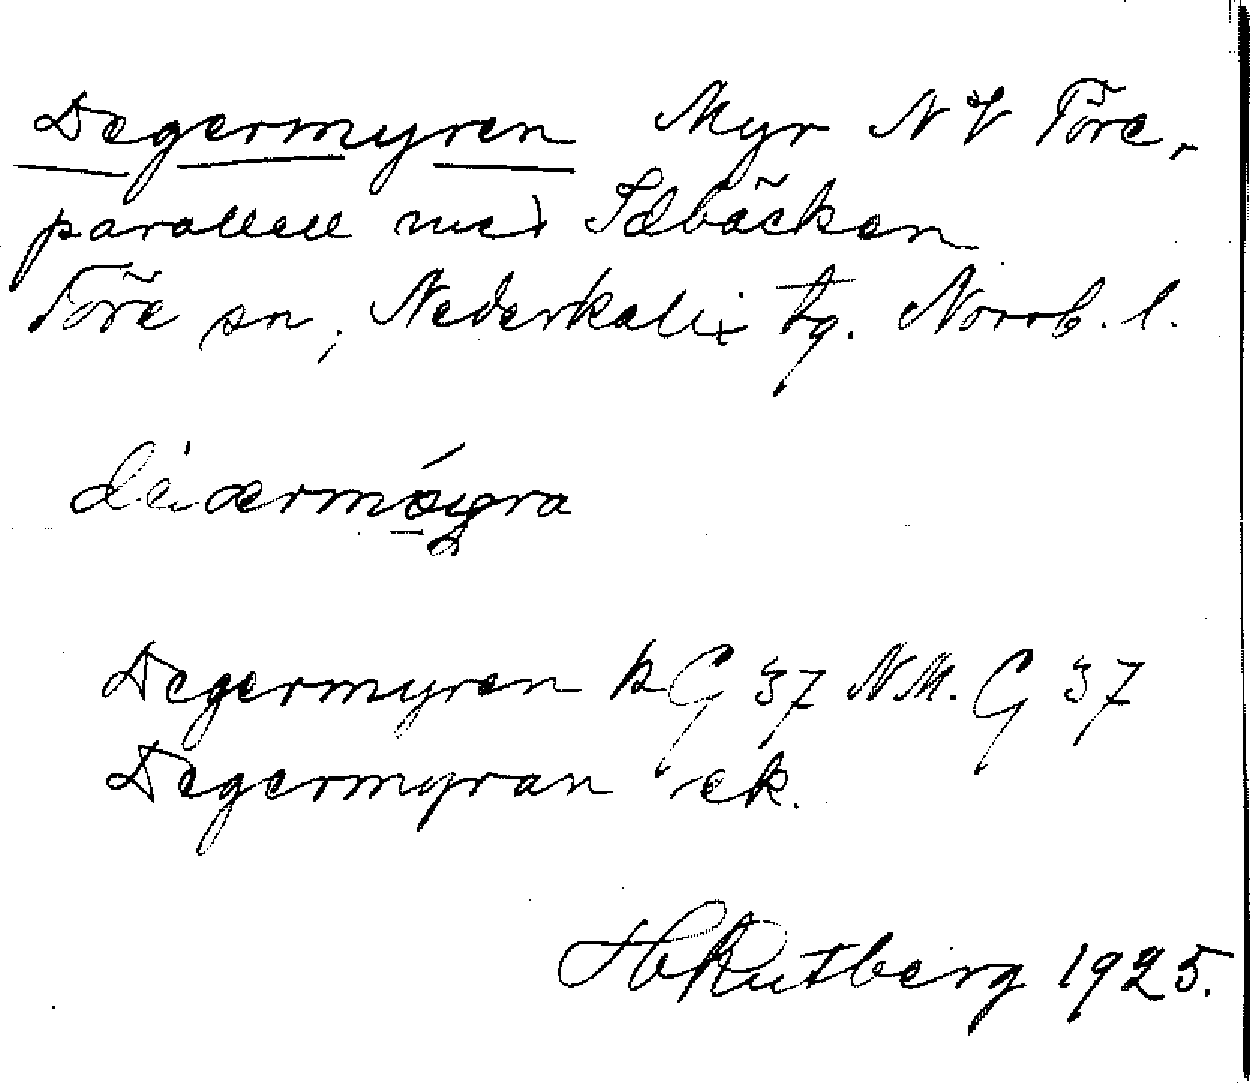 Degermyren Myr NV Töre,
parallell med Idbäcken
Töre sn, Nederkalix tg. Norrb. l.
Degermyren k G 37 N.M. G 37
Degermyran ek.
H Rutberg 1925.